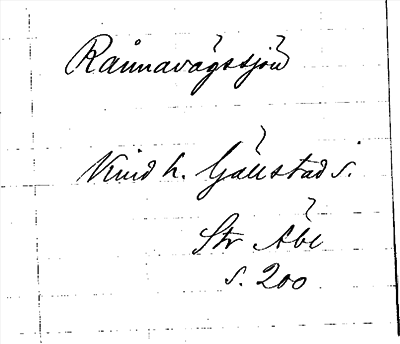 Rånnavägssjön
Kind h. Gällstad s.
Str Åbl
s. 200